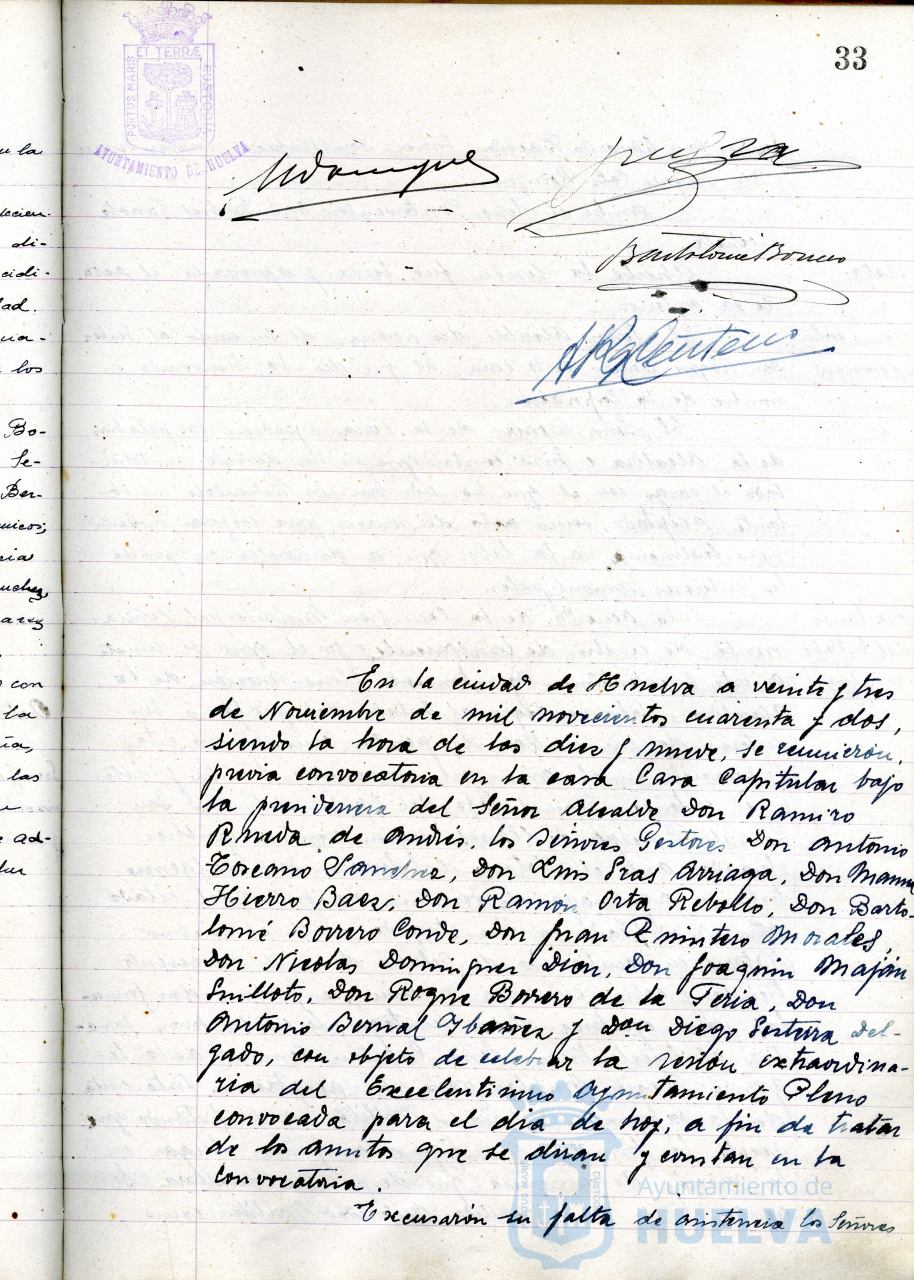 33
PORTUS MARIS ET TERRÆ CUSTODIA
AYUNTAMIENTO DE HUELVA
Bartolomé Borrero
En la ciudad de Huelva a veinte y tres
de Noviembre de mil novecientos cuarenta y dos,
siendo la hora de las diez y nueve, se reunierón,
previa convocatoria en la casa Casa Capitular bajo
la presidencia del Señor Alcalde Don Ramiro
Rueda de Andrés, los Señores Gestores Don Antonio
Toscano Sanchez, Don Luis Sras Arriaga, Don Manuel
Hierro Baez, Don Ramón Orta Rebollo, Don Barto-
lomé Borrero Conde, Don Juan Quintero Morales,
Don Nicolas Dominguez Dion, Don Joaquin Maján
Guilloto, Don Roque Borrero de la Feria, Don
Antonio Bernal Ybañez y Don Diego Sesterra del-
gado, con objeto de celebrar la sesión extraordina-
ria del Excelentisimo Ayuntamiento Pleno
convocada para el dia de hoy, a fin de tratar
de los asuntos que se diran y constan en la
convocatoria.
Excusarón su falta de asistencia los Señores
Ayuntamiento de
HUELVA
u la
di-
cidi-
dad.
los
Bo-
Se-
Ber-
con
la
las
ad-